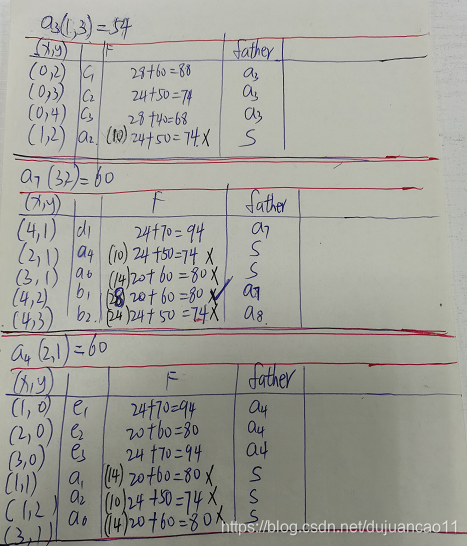 a3(1,3)=54
(x,y) F father
(0,2) c1 28+60=88 a3
(0,3) c2 24+50=74 a3
(0,4) c3 28+40=68 a3
(1,2) a2 (10) 24+50=74 X S
a7(3,2)=60
(x,y) F father
(4,1) d1 24+70=94 a7
(2,1) a4 (10) 24+50=74 X S
(3,1) a6 (14) 20+60=80 X S
(4,2) b1 20+60=80 X ✓ a7
(4,3) b2 (24) 24+50=74 X a8
a4(2,1)=60
(x,y) F father
(1,0) e1 24+70=94 a4
(2,0) e2 20+60=80 a4
(3,0) e3 24+70=94 a4
(1,1) a1 (14) 20+60=80 X S
(1,2) a2 (10) 24+50=74 X S
(3,1) a6 (14) 20+60=80 X S
https://blog.csdn.net/dujuancao11